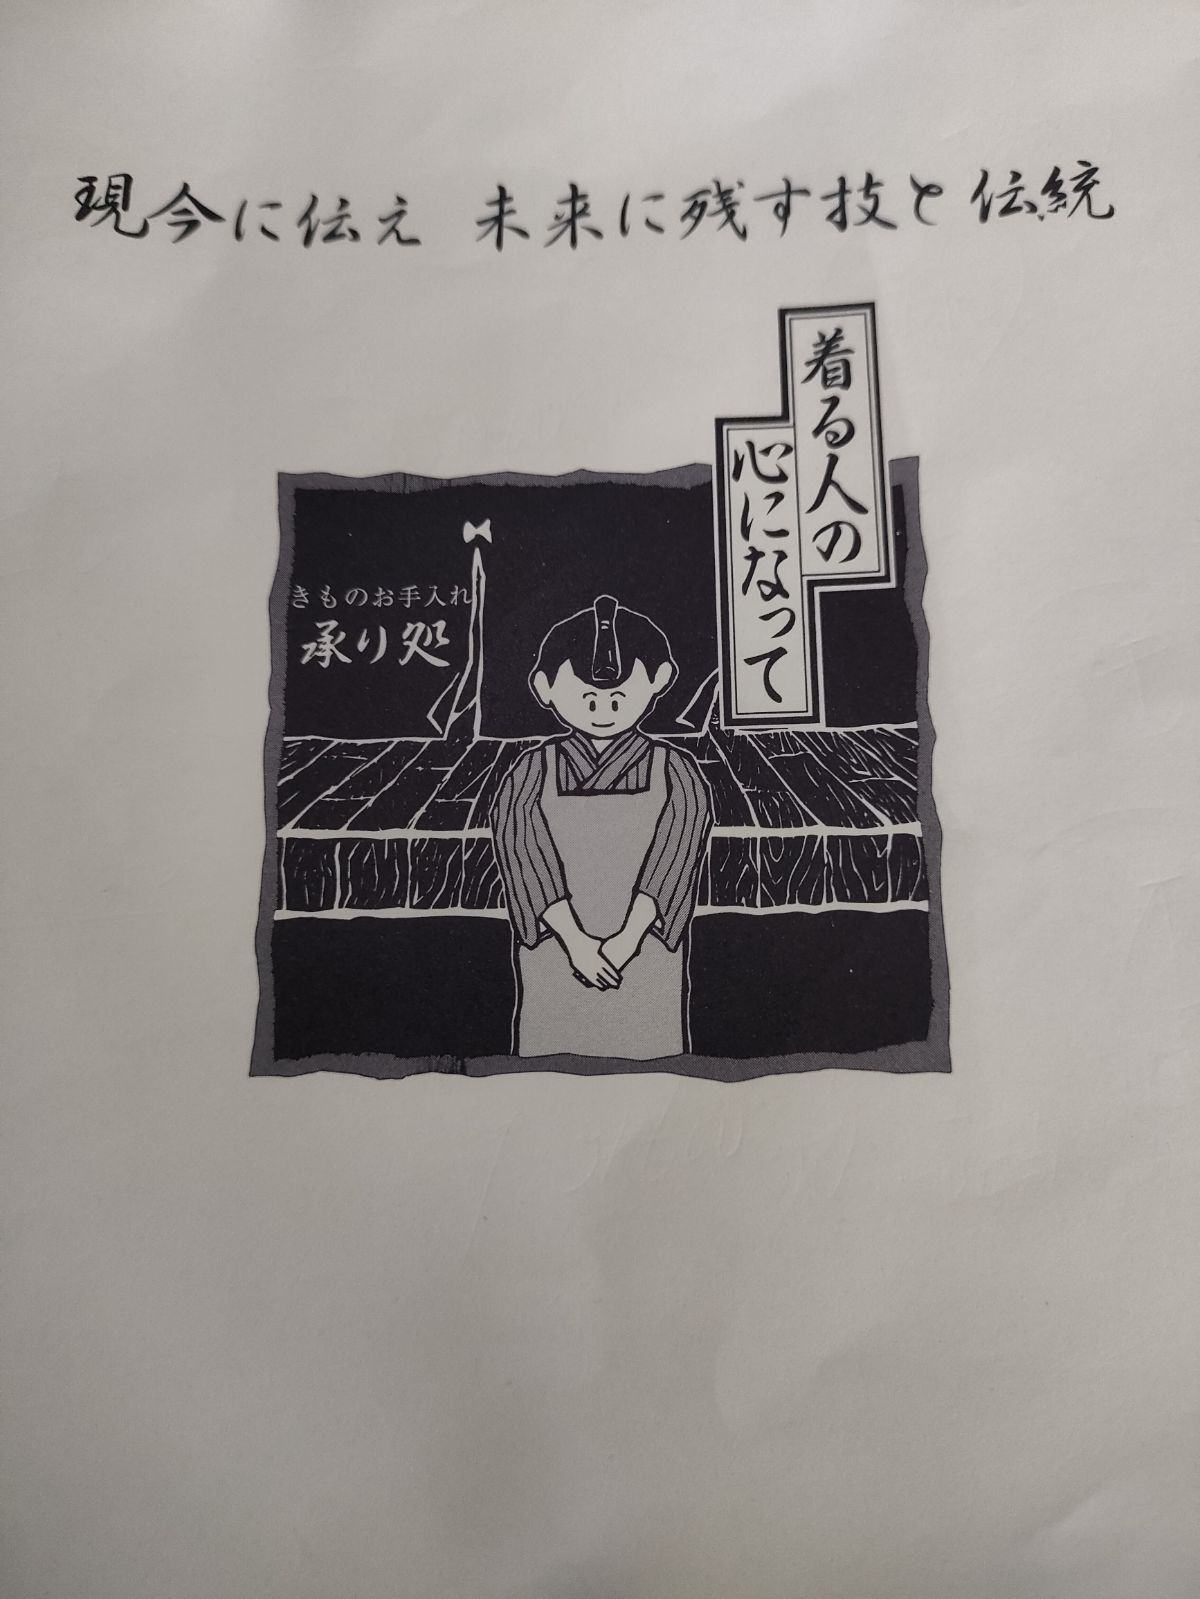 現今に伝え 未来に残す技と伝統
着る人の
心になって
きものお手入れ
承り処